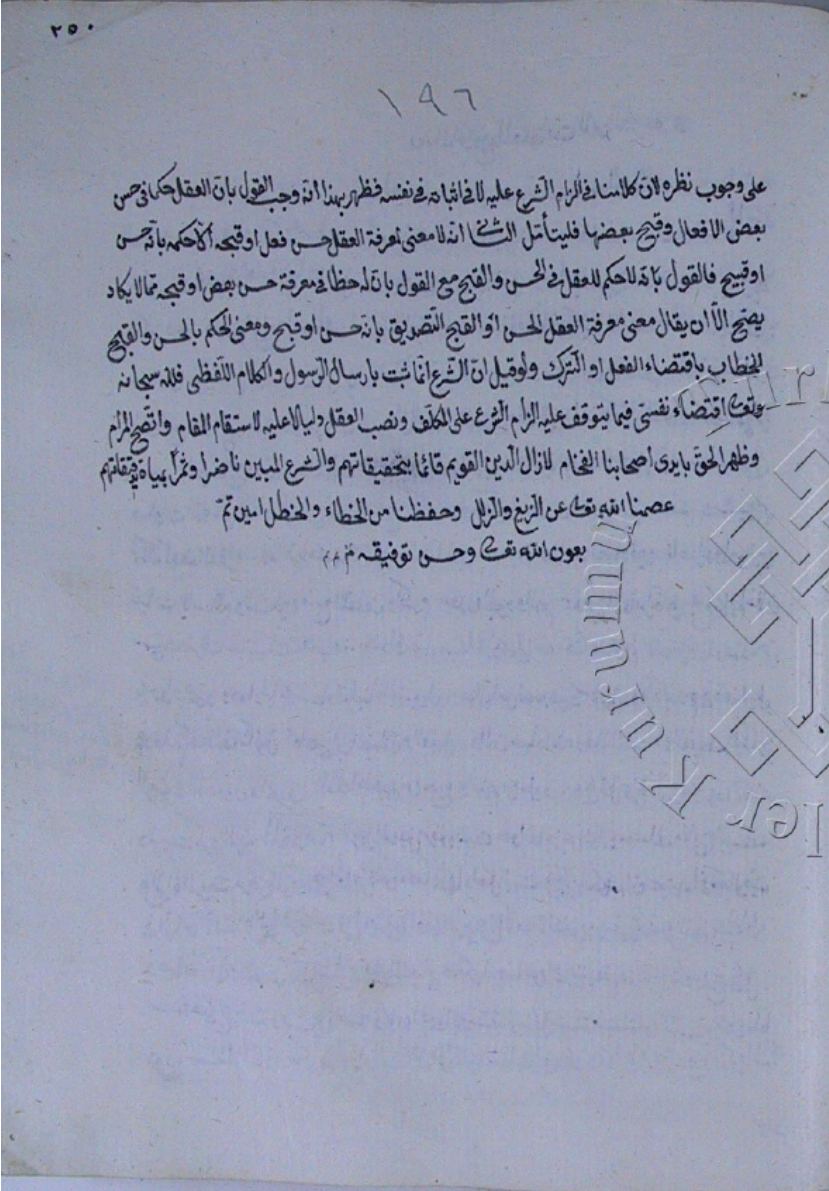 ٢٥٠
١٩٦
على وجوب نظره لان كلامنا في الزام الشرع عليه لا في اثباته في نفسه فظهر بهذا انه وجب القول بان العقل حكما في حسن
بعض الافعال وقبح بعضها فليتأمل الثاني انه لا معنى لمعرفة العقل حسن فعل او قبحه الا حكمه بانه حسن
او قبيح فالقول بانه لا حكم للعقل في الحسن والقبح مع القول بان له حظا في معرفة حسن بعض او قبحه مما لا يكاد
يصح الا ان يقال معنى معرفة العقل الحسن او القبح التصديق بانه حسن او قبح ومعنى الحكم بالحسن والقبح
الخطاب باقتضاء الفعل او الترك ولو قيل ان الشرع انما ثبت بارسال الرسول والكلام اللفظى فلله سبحانه
وتعالى اقتضاء نفسى فيما يتوقف عليه الزام الشرع على المكلف ونصب العقل دليلا عليه لاستقام المقام واتضح المرام
وظهر الحق بايدى اصحابنا الفخام لا زال الدين القويم قائما بتحقيقاتهم والشرع المبين ناضرا بمياه
عصمنا الله تعالى عن الزيغ والزلل وحفظنا من الخطاء والخطل امين تم
بعون الله تعالى وحسن توفيقه م م م